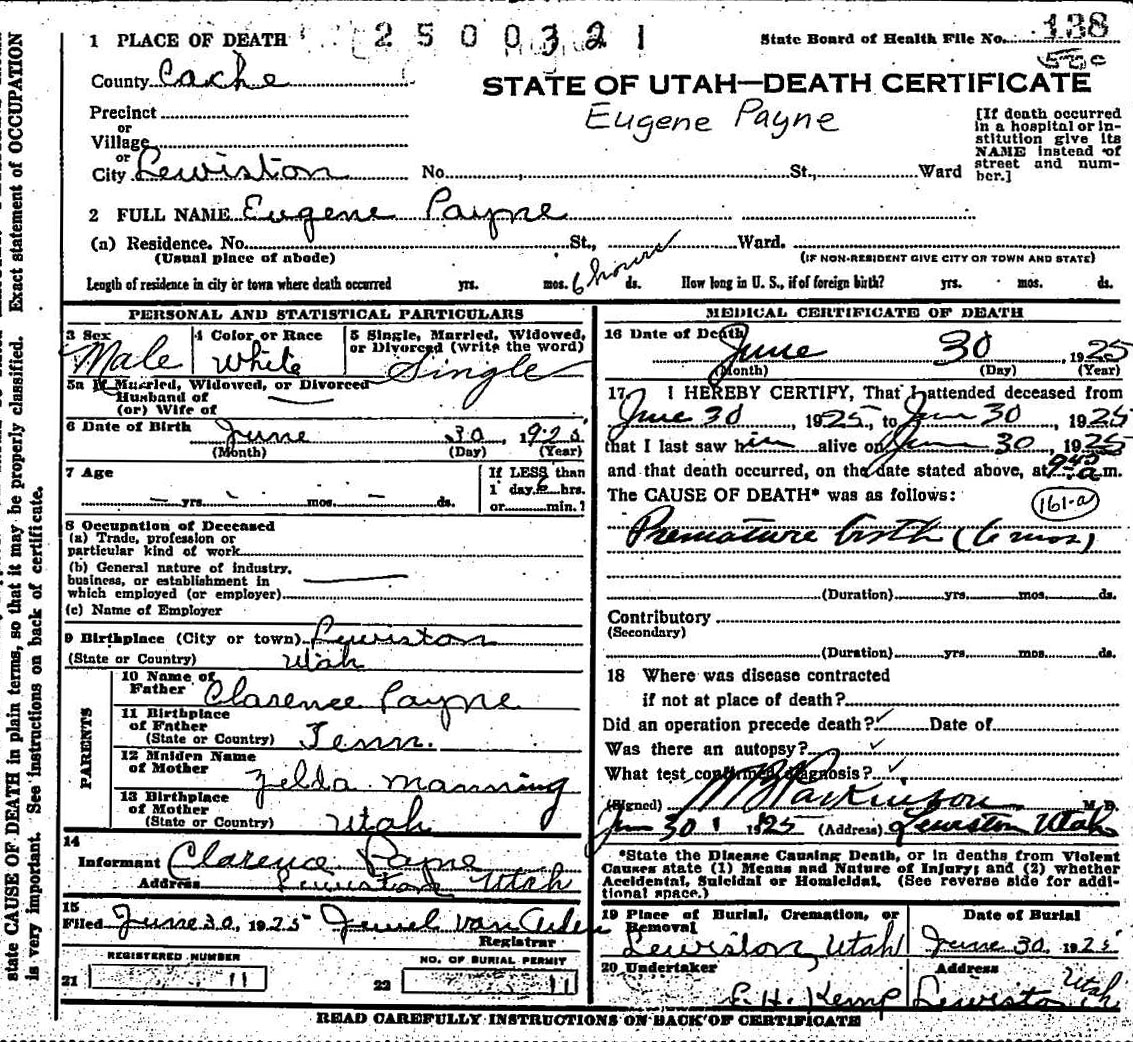 2500321
State Board of Health File No. 138
1 PLACE OF DEATH
County Cache
STATE OF UTAH—DEATH CERTIFICATE
Eugene Payne
Precinct
or
Village
or
City Lewiston No. St., Ward
[If death occurred
in a hospital or in-
stitution give its
NAME instead of
street and num-
ber.]
2 FULL NAME Eugene Payne
(a) Residence. No. St., Ward.
(Usual place of abode) (IF NON-RESIDENT GIVE CITY OR TOWN AND STATE)
Length of residence in city or town where death occurred yrs. mos. 6 hours ds. How long in U. S., if of foreign birth? yrs. mos. ds.
PERSONAL AND STATISTICAL PARTICULARS
3 Sex 4 Color or Race 5 Single, Married, Widowed,
or Divorced (write the word)
Male White Single
5a If Married, Widowed, or Divorced
Husband of
(or) Wife of
6 Date of Birth June 30, 1925
(Month) (Day) (Year)
7 Age If LESS than
yrs. mos. ds. 1 day, 6 hrs.
or min.?
8 Occupation of Deceased
(a) Trade, profession or
particular kind of work
(b) General nature of industry,
business, or establishment in
which employed (or employer)
(c) Name of Employer
9 Birthplace (City or town) Lewiston
(State or Country) Utah
PARENTS
10 Name of
Father Clarence Payne
11 Birthplace
of Father
(State or Country) Tenn.
12 Maiden Name
of Mother Zelda Manning
13 Birthplace
of Mother
(State or Country) Utah
14
Informant Clarence Payne
Address Lewiston Utah
15
Filed June 30, 1925 Jewel Van
Registrar
REGISTERED NUMBER NO. OF BURIAL PERMIT
21 11 22 11
MEDICAL CERTIFICATE OF DEATH
16 Date of Death
June 30, 1925
(Month) (Day) (Year)
17 I HEREBY CERTIFY, That I attended deceased from
June 30, 1925, to June 30, 1925
that I last saw him alive on June 30, 1925
and that death occurred, on the date stated above, at 9 40 a.m.
The CAUSE OF DEATH* was as follows: 161-a
Premature birth (6 mos)
(Duration) yrs. mos. ds.
Contributory
(Secondary)
(Duration) yrs. mos. ds.
18 Where was disease contracted
if not at place of death?
Did an operation precede death? ✓ Date of
Was there an autopsy? ✓
What test confirmed diagnosis? ✓
(Signed) Parkinson M.D.
Jun 30, 1925 (Address) Lewiston Utah
*State the Disease Causing Death, or in deaths from Violent
Causes state (1) Means and Nature of Injury; and (2) whether
Accidental, Suicidal or Homicidal. (See reverse side for addi-
tional space.)
19 Place of Burial, Cremation, or
Removal Date of Burial
Lewiston, Utah June 30, 1925
20 Undertaker Address
E. H. Kemp Lewiston Utah
READ CAREFULLY INSTRUCTIONS ON BACK OF CERTIFICATE
state CAUSE OF DEATH in plain terms, so that it may be properly classified. Exact statement of OCCUPATION
is very important. See instructions on back of certificate.